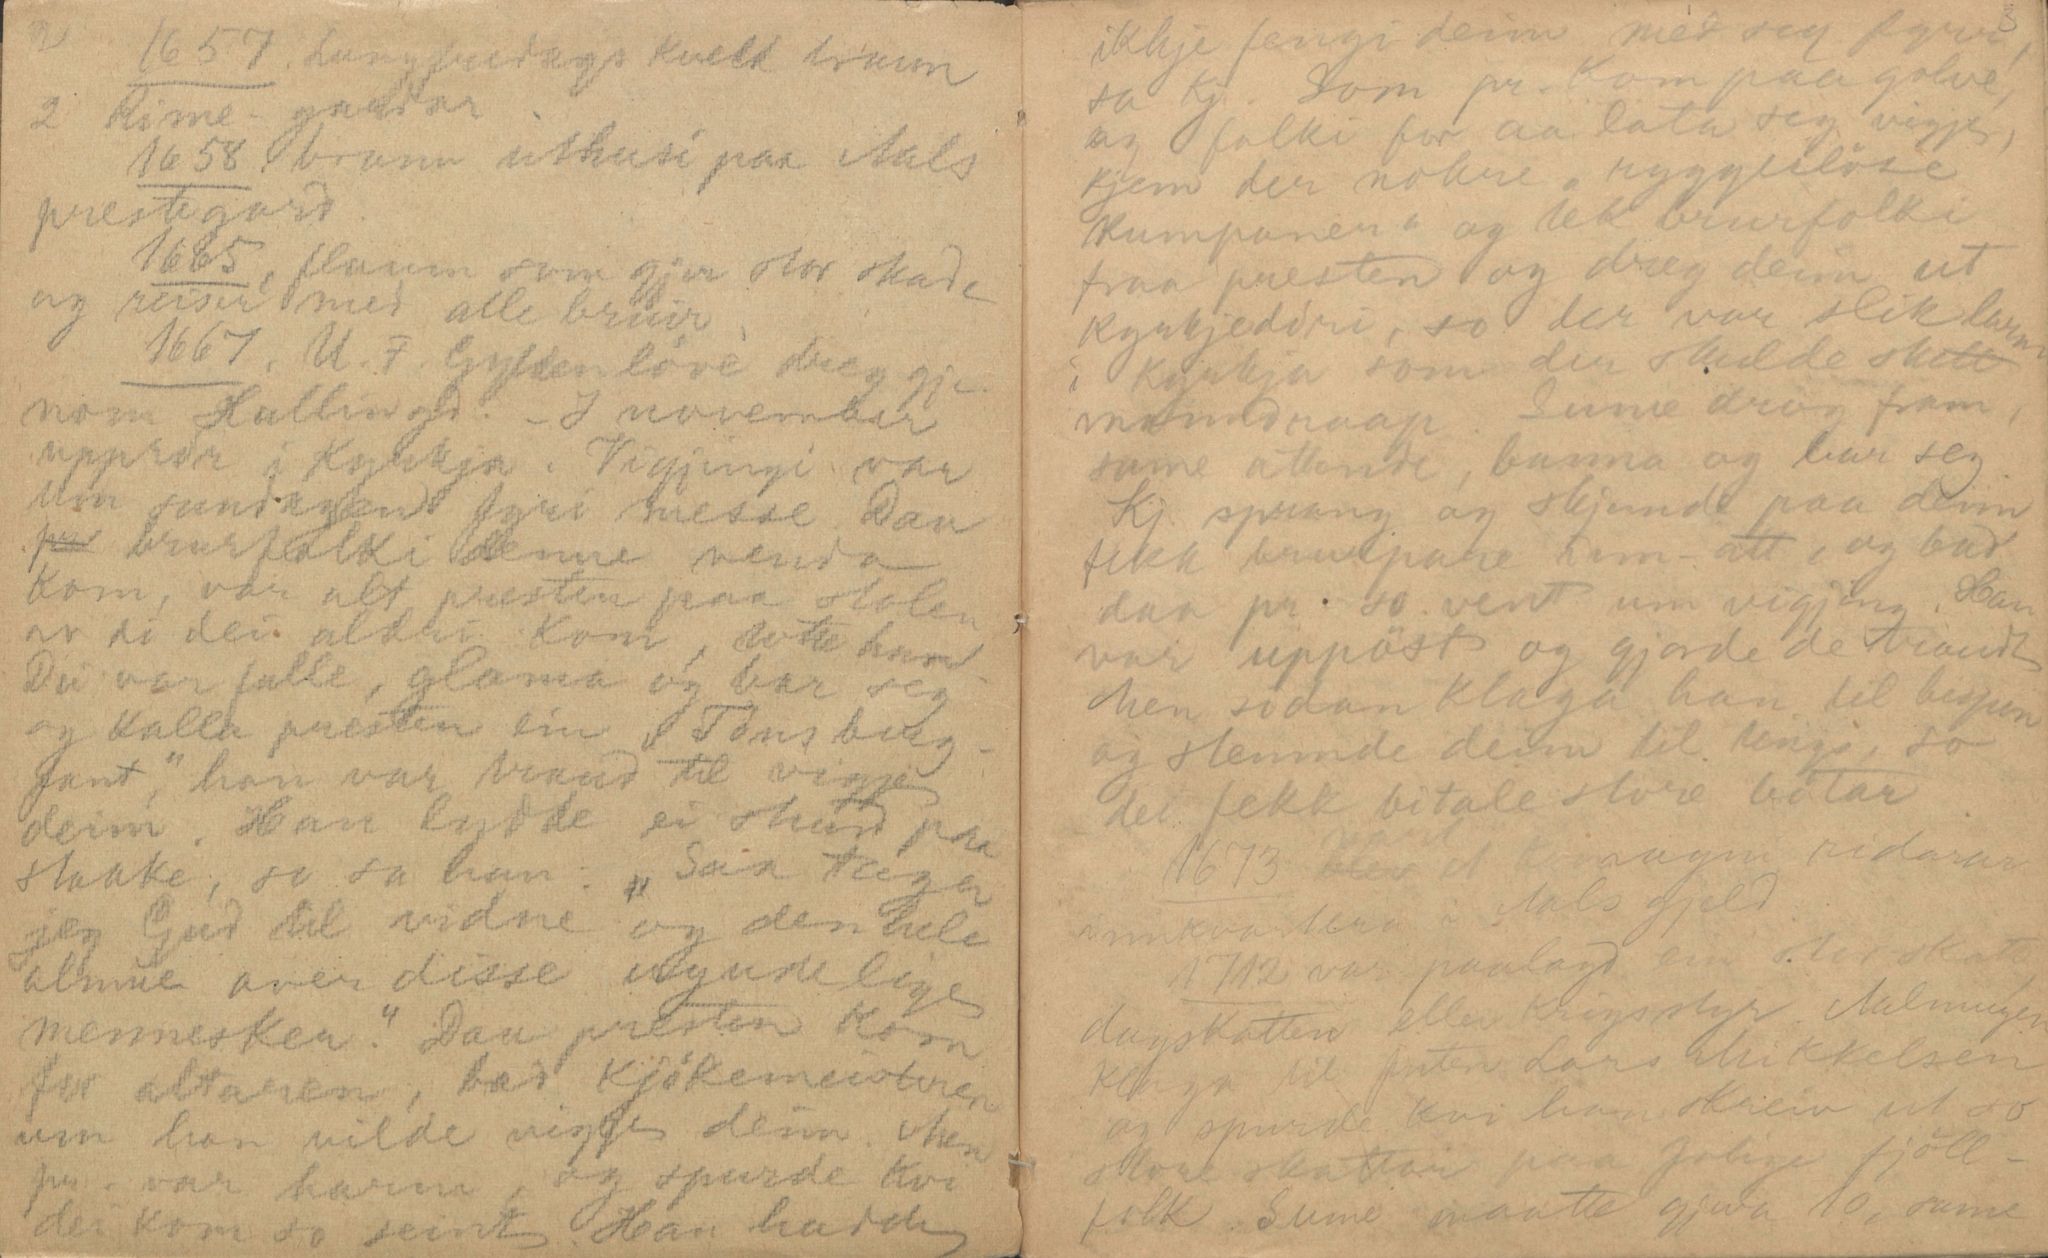 2
1657. Langfredags kveld brann
2 Kime-gardar.
1658. brann uthusi paa Aals
prestegard.
1665, flaum som gjer stor skade
og reiser med alle bruir.
1667. U. F. Gyldenlöve dreg gje-
nom Hallingd. - I november
upprör i Kyrkja. Vigjingi var
um sundagen fyri messe. Daa
pr brurfolki denne venda
kom, var alt presten paa stolen
av di dei aldri kom, totte han.
Dei var fulle, glama og bar seg
og kalla presten ein "Tönsberg-
fant," han var traud til vigje
deim. Han lydde ei stund paa
staake, so sa han: "Saa tager
jeg Gud til vidne og den hele
almue over disse ugudelige
mennesker." Daa presten kom
for altaren, bad kjökemeisteren
um han vilde vigje deim. Men
pr. var harm, og spurde kvi
dei kom so seint. Han hadde
3
ikkje fengi deim med seg fyrr,
sa Kj. Som pr. kom paa golve,
og folki for aa lata seg vigje,
kjem der nokre "ryggeslöse
kumpaner" og tek brurfolki
fraa presten og dreg deim ut
kyrkjedöri, so der var slik larm
i kyrkja som der skulde skett
manndraap. Sume drog fram,
sume attende, banna og bar seg.
Kj. sprang og skjende paa deim
fekk brurpare inn-att, og bad
daa pr. so vent um vigjing. Han
var uppöst og gjorde de traudt
Men sidan klaga han til bispen
og stemnde deim til tings, so
dei fekk bitale store bötar.
1673 vart et kompagni ridarar
innkvartera i Aals gjeld.
1712 var paalagd ein stor skatt,
dagskatten eller krigsstyr. Aalmugen
klaga til futen Lars Mikkelsen
og spurde kvi han skreiv ut so
store skattar paa fatige fjöll-
folk. Sume maatte gjeva 10, sume